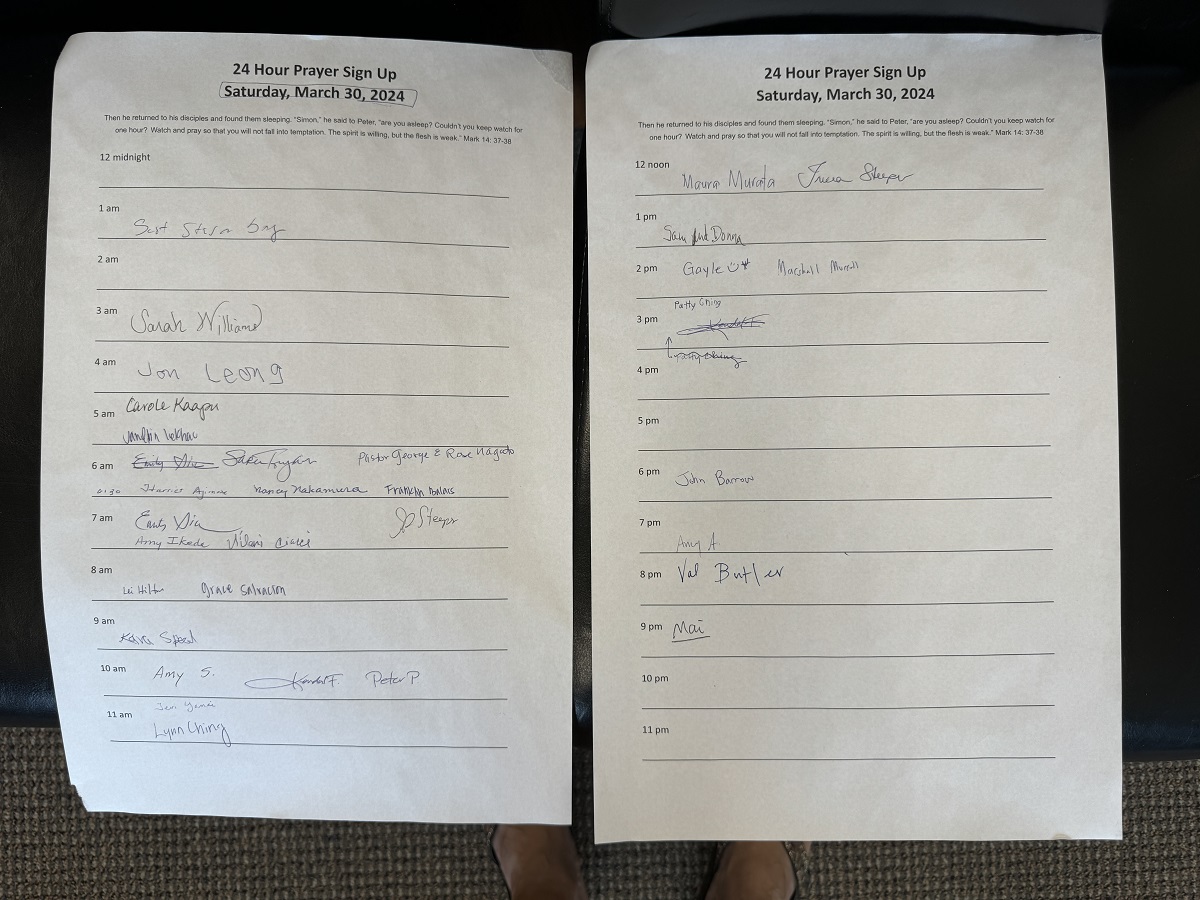 24 Hour Prayer Sign Up
Saturday, March 30, 2024
Then he returned to his disciples and found them sleeping. "Simon," he said to Peter, "are you asleep? Couldn't you keep watch for
one hour? Watch and pray so that you will not fall into temptation. The spirit is willing, but the flesh is weak." Mark 14: 37-38
12 midnight
1 am
2 am
3 am Sarah Williams
4 am Jon Leong
5 am Carole Kaapu
6 am Pastor George & Rose Nagato
Harriet Nancy Nakamura Franklin
7 am Emily Steeper
Amy Ikeda
8 am
Lei Hilton Grace Salvacion
9 am
Kara Speed
10 am Amy S. Kendal F. Peter P
11 am
Lynn Ching
24 Hour Prayer Sign Up
Saturday, March 30, 2024
Then he returned to his disciples and found them sleeping. "Simon," he said to Peter, "are you asleep? Couldn't you keep watch for
one hour? Watch and pray so that you will not fall into temptation. The spirit is willing, but the flesh is weak." Mark 14: 37-38
12 noon Maura Murata Steeper
1 pm
Sam and Donna
2 pm Gayle Marshall
Patty Ching
3 pm Kendal F.
Patty Ching
4 pm
5 pm
6 pm John Barrow
7 pm
Amy A.
8 pm Val Butler
9 pm Mai
10 pm
11 pm